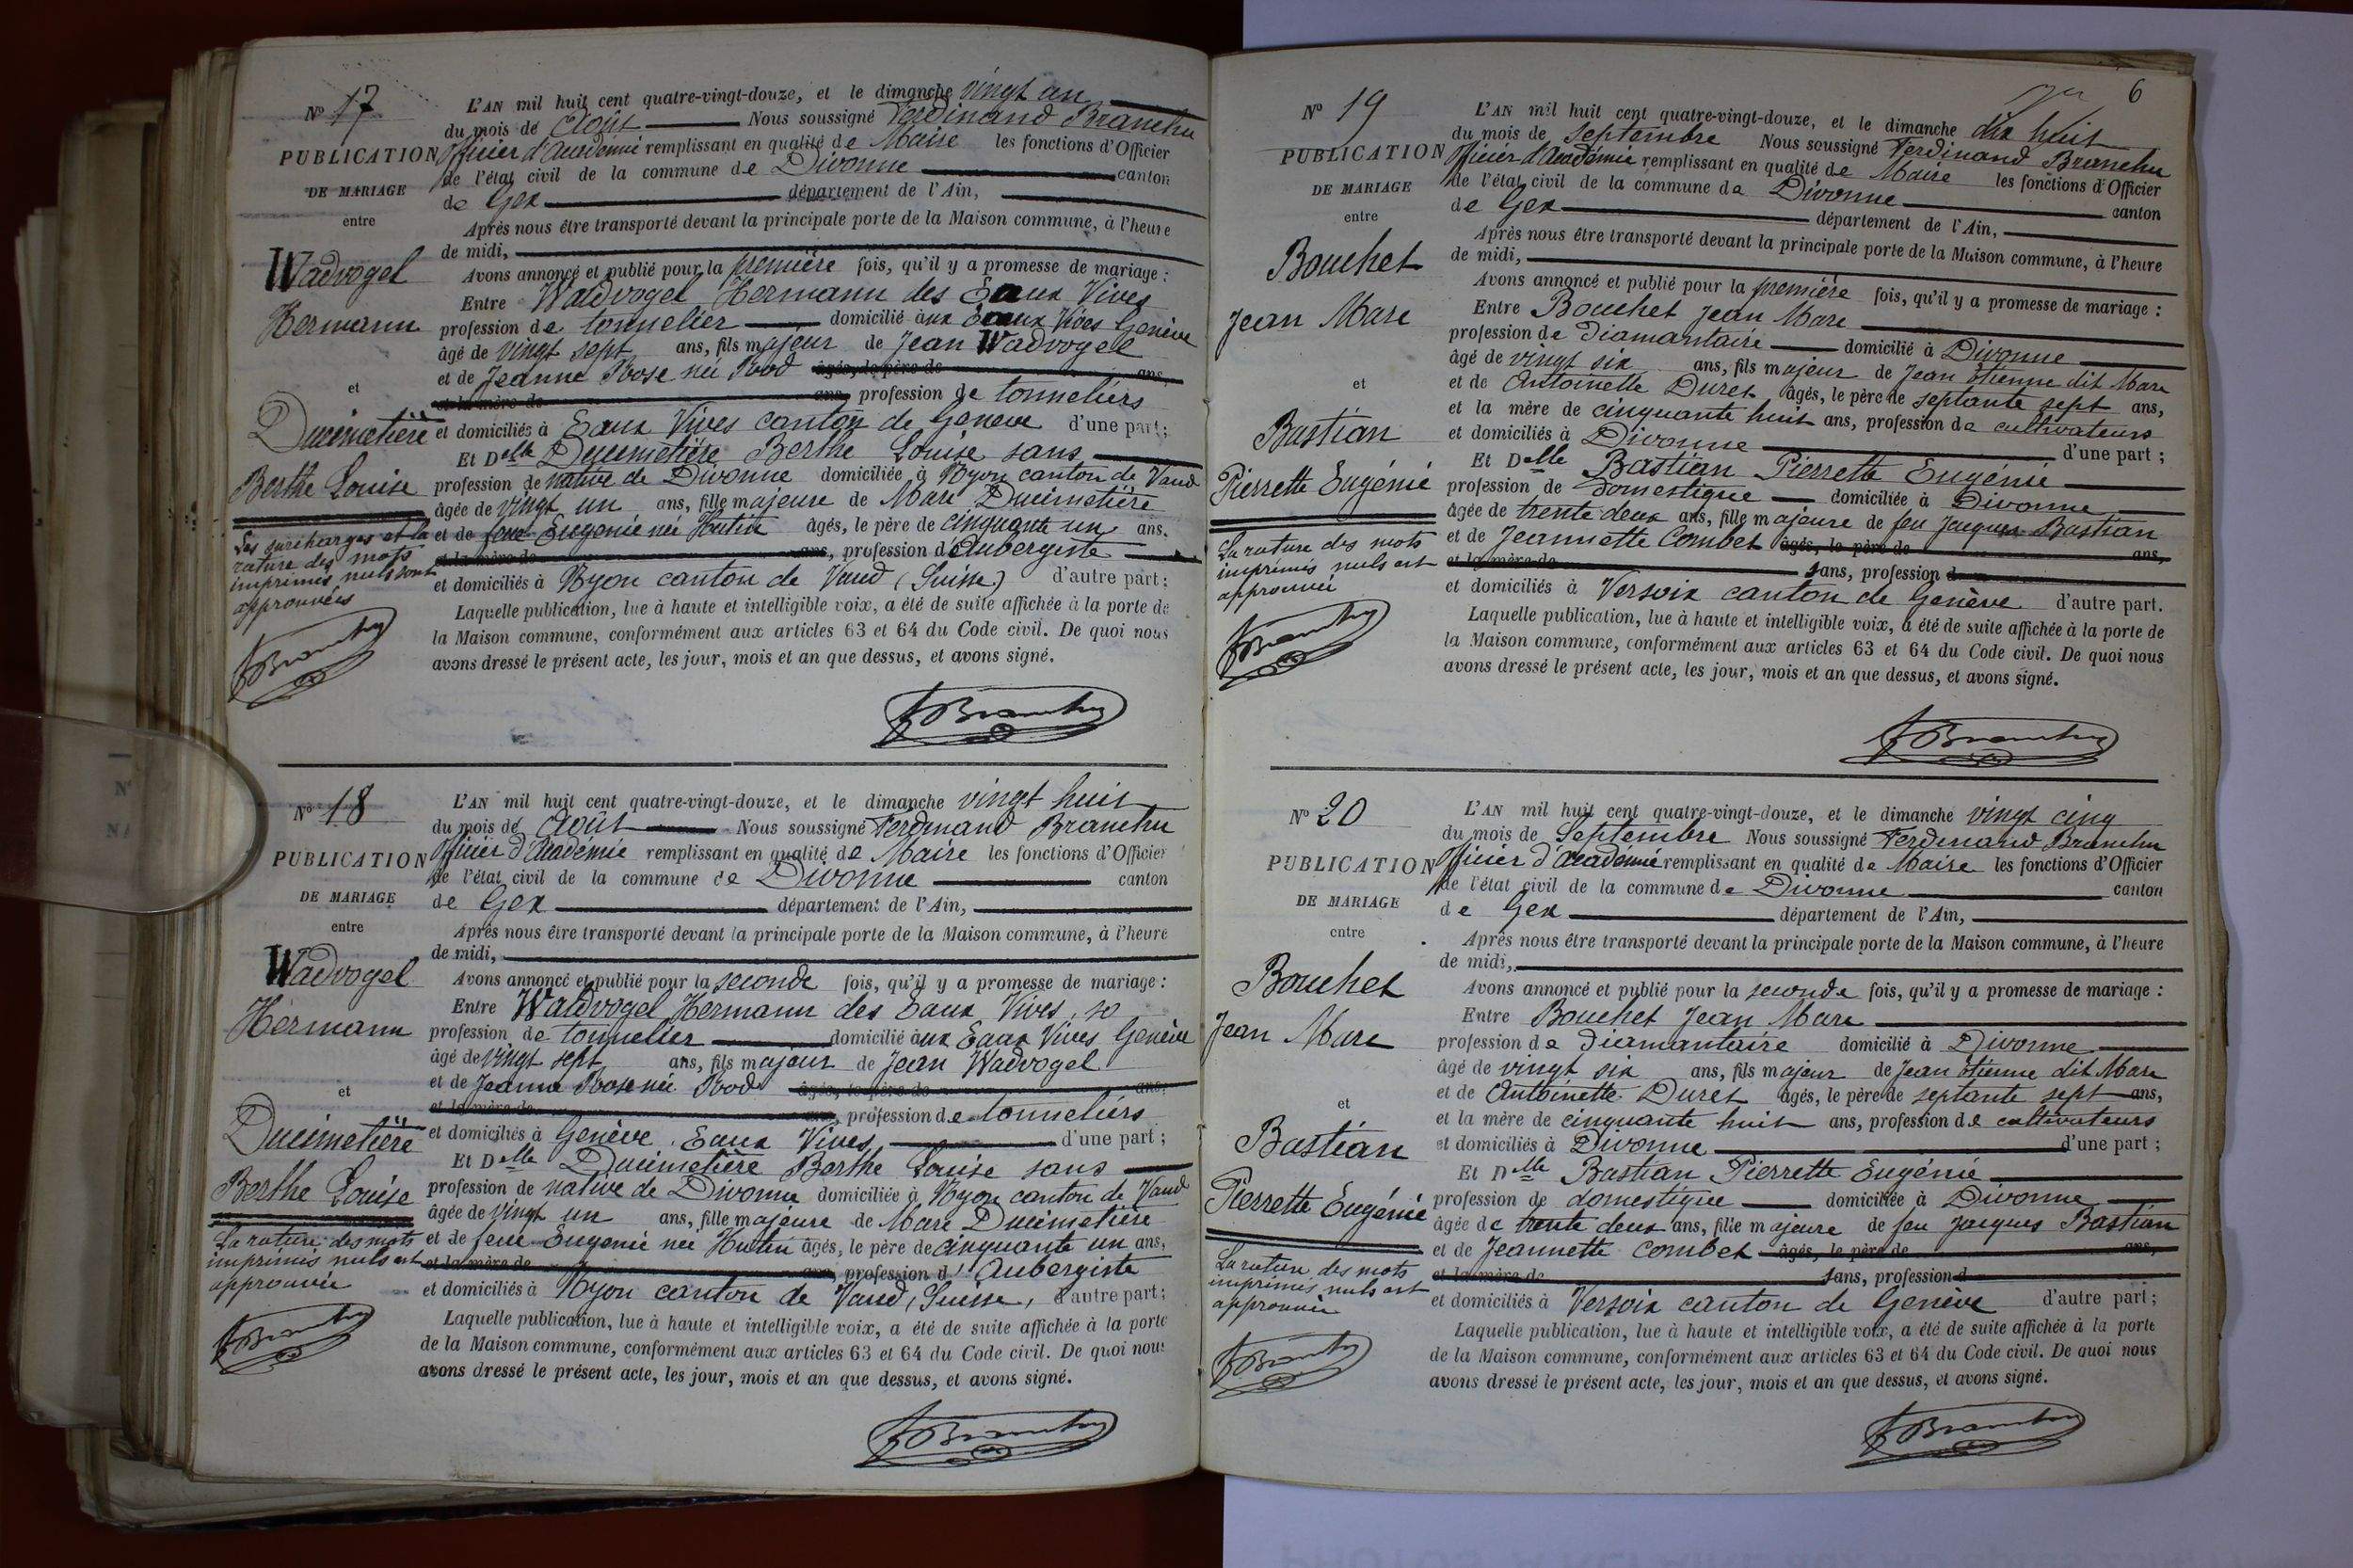 N° 17
PUBLICATION
DE MARIAGE
entre
Wadvogel
Hermann
et
Ducimetière
Berthe Louise
Les surcharges et la
rature des mots
imprimés nuls sont
approuvées
FBranchu
L'AN mil huit cent quatre-vingt-douze, et le dimanche vingt un
du mois de Août Nous soussigné Ferdinand Branchu
Officier d'Académie remplissant en qualité de Maire les fonctions d'Officier
de l'état civil de la commune de Divonne canton
de Gex département de l'Ain,
Après nous être transporté devant la principale porte de la Maison commune, à l'heure
de midi,
Avons annoncé et publié pour la première fois, qu'il y a promesse de mariage :
Entre Waldvogel Hermann des Eaux Vives
profession de tonnelier domicilié aux Eaux Vives Genève
âgé de vingt sept ans, fils majeur de Jean Wadvogel
et de Jeanne Rose née Rod âgés, le père de ans,
et la mère de ans, profession de tonneliers
et domiciliés à Eaux Vives canton de Genève d'une part ;
Et Delle Ducimetière Berthe Louise sans
profession de native de Divonne domiciliée à Nyon canton de Vaud
âgée de vingt un ans, fille majeure de Marc Ducimetière
et de feue Eugenie née Hutin âgés, le père de cinquante un ans.
et la mère de ans, profession d'Aubergiste
et domiciliés à Nyon canton de Vaud (Suisse) d'autre part ;
Laquelle publication, lue à haute et intelligible voix, a été de suite affichée à la porte de
la Maison commune, conformément aux articles 63 et 64 du Code civil. De quoi nous
avons dressé le présent acte, les jour, mois et an que dessus, et avons signé.
FBranchu
N° 18
PUBLICATION
DE MARIAGE
entre
Wadvogel
Hermann
et
Ducimetière
Berthe Louise
La rature des mots
imprimés nuls est
approuvée
FBranchu
L'AN mil huit cent quatre-vingt-douze, et le dimanche vingt huit
du mois de Août Nous soussigné Ferdinand Branchu
Officier d'Académie remplissant en qualité de Maire les fonctions d'Officier
de l'état civil de la commune de Divonne canton
de Gex département de l'Ain,
Après nous être transporté devant la principale porte de la Maison commune, à l'heure
de midi,
Avons annoncé et publié pour la seconde fois, qu'il y a promesse de mariage :
Entre Waldvogel Hermann des Eaux Vives,
profession de tonnelier domicilié aux Eaux Vives Genève
âgé de vingt sept ans, fils majeur de Jean Wadvogel
et de Jeanne Rose née Rod âgés, le père de ans,
et la mère de ans, profession de tonneliers
et domiciliés à Genève, Eaux Vives, d'une part ;
Et Delle Ducimetière Berthe Louise sans
profession de native de Divonne domiciliée à Nyon canton de Vaud
âgée de vingt un ans, fille majeure de Marc Ducimetière
et de feue Eugenie née Hutin âgés, le père de cinquante un ans,
et la mère de ans, profession d'Aubergiste
et domiciliés à Nyon canton de Vaud, Suisse, d'autre part ;
Laquelle publication, lue à haute et intelligible voix, a été de suite affichée à la porte
de la Maison commune, conformément aux articles 63 et 64 du Code civil. De quoi nous
avons dressé le présent acte, les jour, mois et an que dessus, et avons signé.
FBranchu
6
N° 19
PUBLICATION
DE MARIAGE
entre
Bouchet
Jean Marc
et
Bastian
Pierrette Eugénie
La rature des mots
imprimés nuls est
approuvée
FBranchu
L'AN mil huit cent quatre-vingt-douze, et le dimanche dix huit
du mois de Septembre Nous soussigné Ferdinand Branchu
Officier d'Académie remplissant en qualité de Maire les fonctions d'Officier
de l'état civil de la commune de Divonne canton
de Gex département de l'Ain,
Après nous être transporté devant la principale porte de la Maison commune, à l'heure
de midi,
Avons annoncé et publié pour la première fois, qu'il y a promesse de mariage :
Entre Bouchet Jean Marc
profession de Diamantaire domicilié à Divonne
âgé de vingt six ans, fils majeur de Jean Etienne dit Marc
et de Antoinette Duret âgés, le père de septante sept ans,
et la mère de cinquante huit ans, profession de cultivateurs
et domiciliés à Divonne d'une part ;
Et Delle Bastian Pierrette Eugénie
profession de Domestique domiciliée à Divonne
âgée de trente deux ans, fille majeure de feu Jacques Bastian
et de Jeannette Combet âgés, le père de ans,
et la mère de sans, profession d
et domiciliés à Versoix canton de Genève d'autre part.
Laquelle publication, lue à haute et intelligible voix, a été de suite affichée à la porte de
la Maison commune, conformément aux articles 63 et 64 du Code civil. De quoi nous
avons dressé le présent acte, les jour, mois et an que dessus, et avons signé.
FBranchu
N° 20
PUBLICATION
DE MARIAGE
entre
Bouchet
Jean Marc
et
Bastian
Pierrette Eugénie
La rature des mots
imprimés nuls est
approuvée
FBranchu
L'AN mil huit cent quatre-vingt-douze, et le dimanche vingt cinq
du mois de Septembre Nous soussigné Ferdinand Branchu
Officier d'Académie remplissant en qualité de Maire les fonctions d'Officier
de l'état civil de la commune de Divonne canton
de Gex département de l'Ain,
Après nous être transporté devant la principale porte de la Maison commune, à l'heure
de midi,
Avons annoncé et publié pour la seconde fois, qu'il y a promesse de mariage :
Entre Bouchet Jean Marc
profession de diamantaire domicilié à Divonne
âgé de vingt six ans, fils majeur de Jean Etienne dit Marc
et de Antoinette Duret âgés, le père de septante sept ans,
et la mère de cinquante huit ans, profession de cultivateurs
et domiciliés à Divonne d'une part ;
Et Delle Bastian Pierrette Eugénie
profession de domestique domiciliée à Divonne
âgée de trente deux ans, fille majeure de feu Jacques Bastian
et de Jeannette Combet âgés, le père de ans,
et la mère de sans, profession d
et domiciliés à Versoix canton de Genève d'autre part ;
Laquelle publication, lue à haute et intelligible voix, a été de suite affichée à la porte
de la Maison commune, conformément aux articles 63 et 64 du Code civil. De quoi nous
avons dressé le présent acte, les jour, mois et an que dessus, et avons signé.
FBranchu